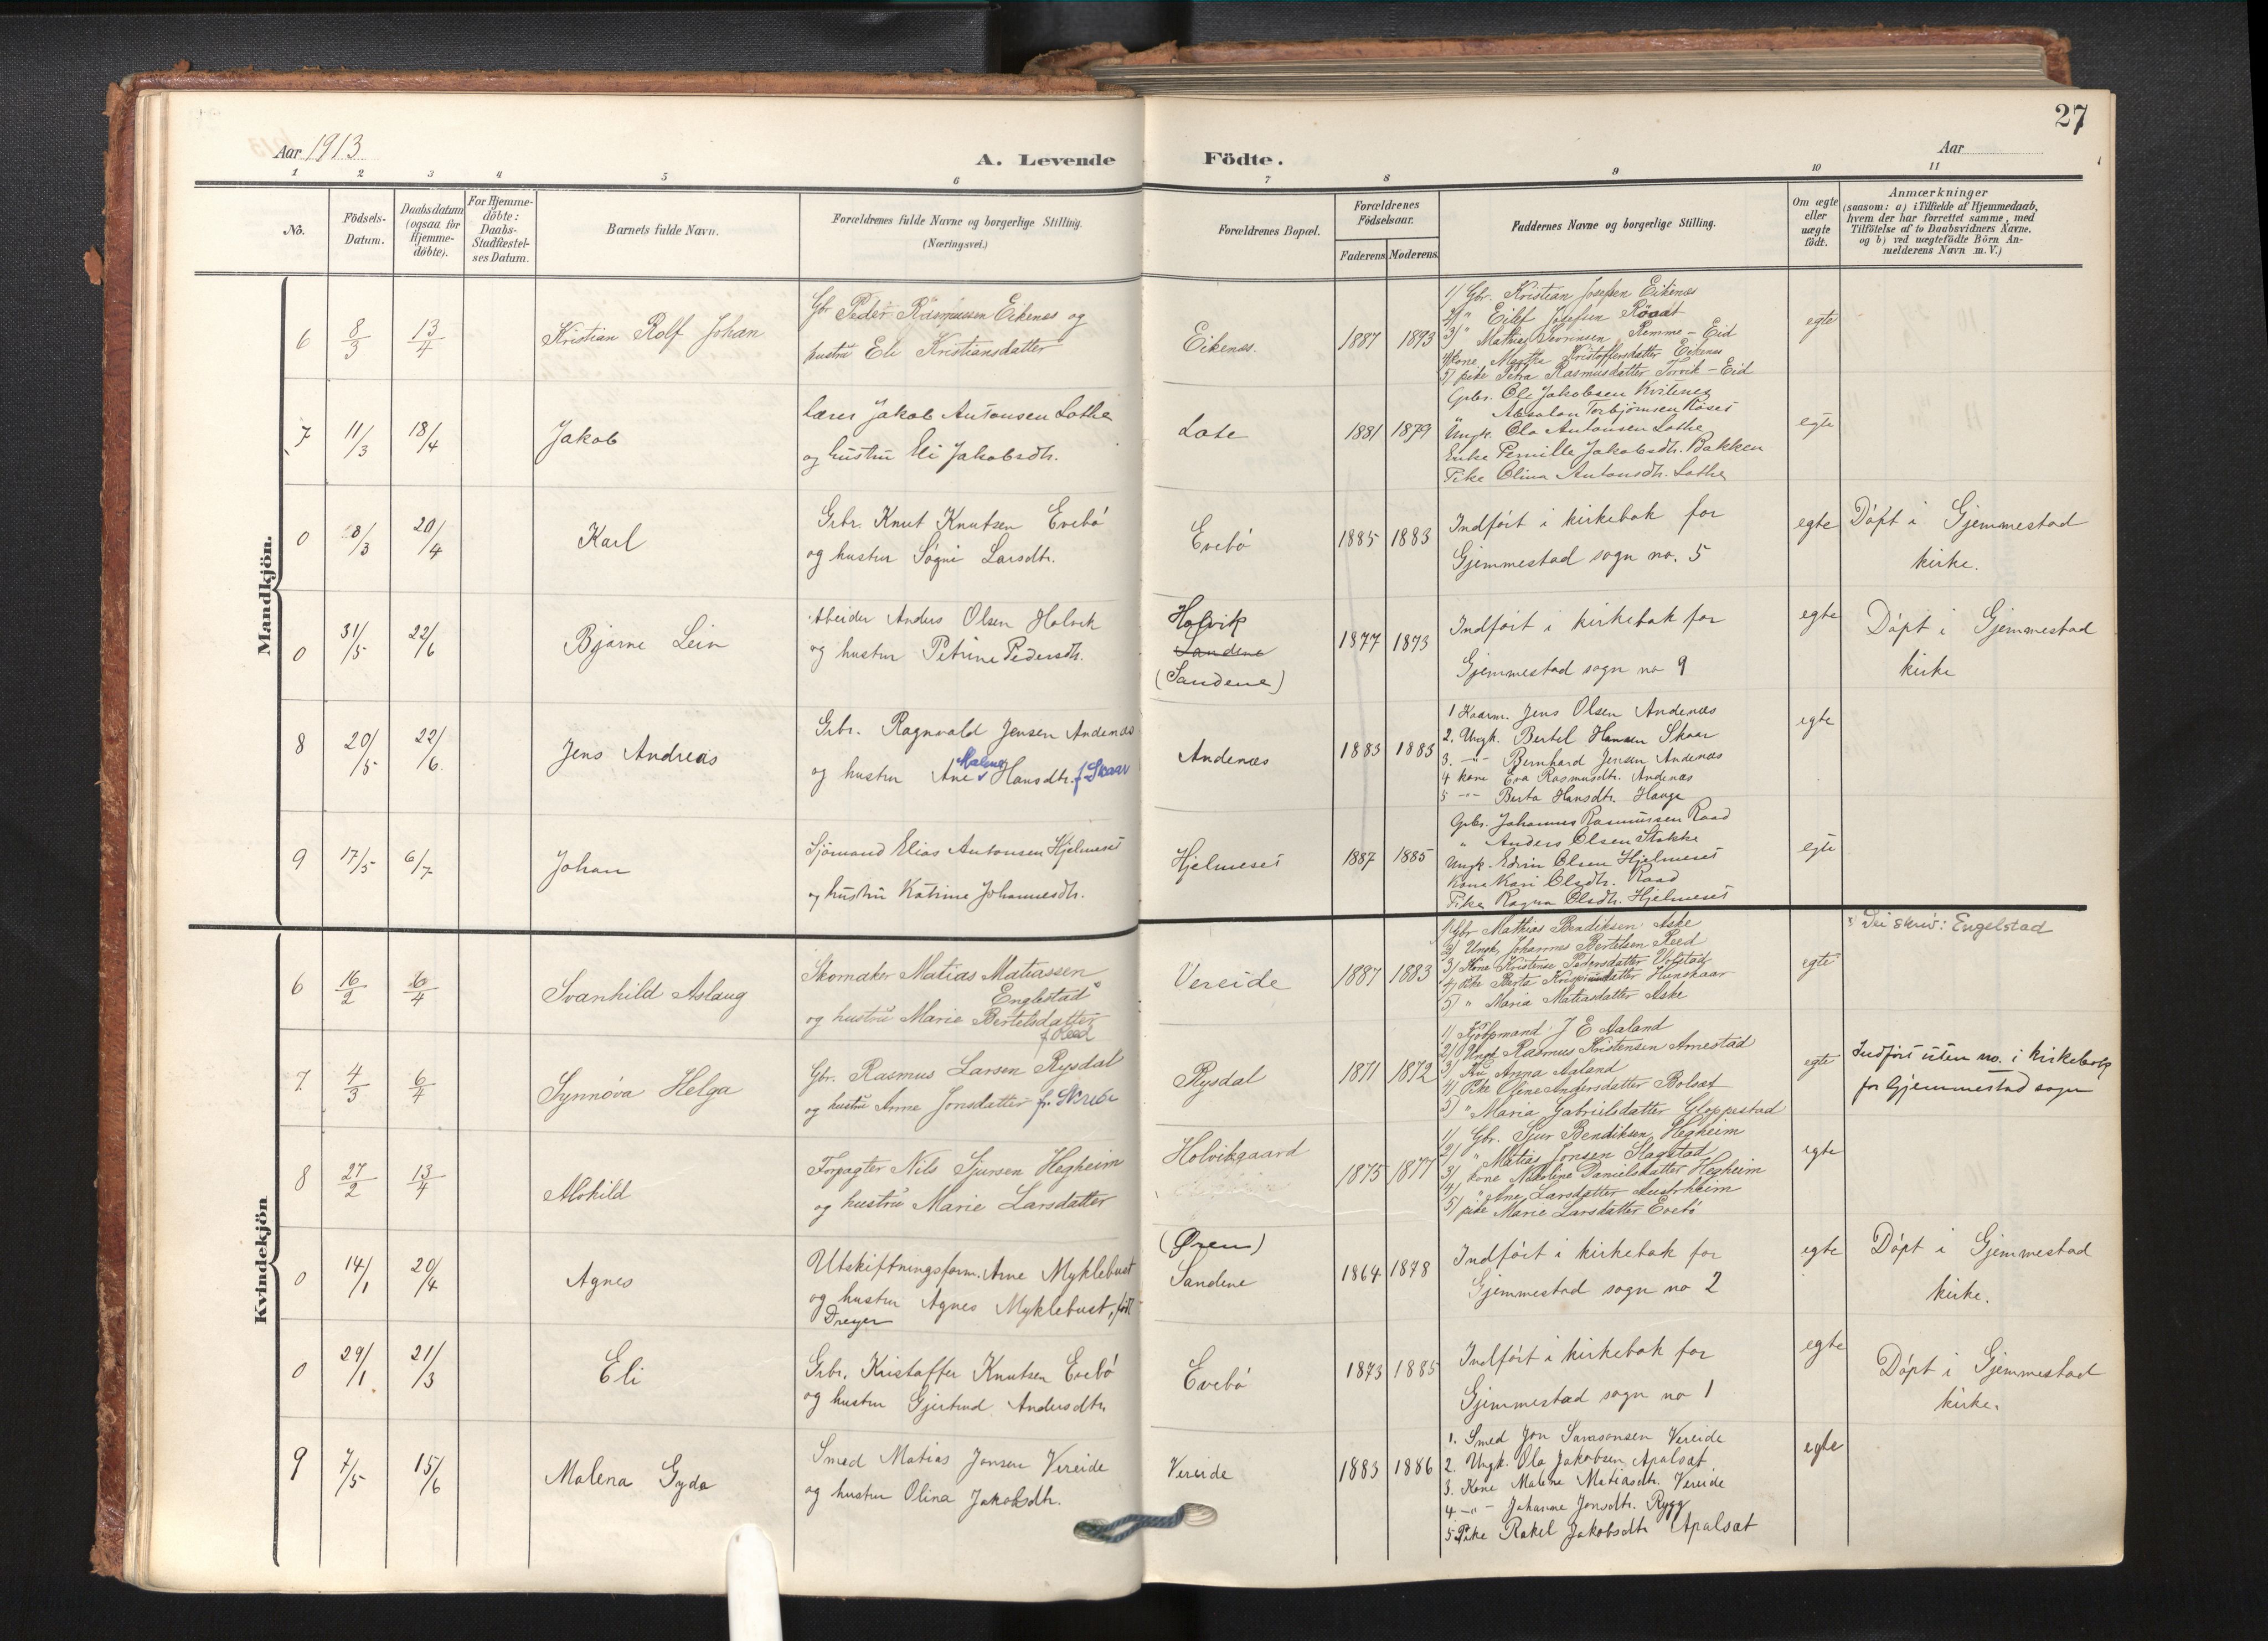 27
Aar 1913
A. Levende Födte.
Aar
1 2 3 4 5 6 7 8 9 10 11
No.
Födsels-
Datum.
Daabsdatum
(ogsaa for
Hjemme-
döbte).
For Hjemme-
döbte:
Daabs-
Stadfæstel-
ses Datum.
Barnets fulde Navn.
Forældrenes fulde Navne og borgerlige Stilling.
(Næringsvei.)
Forældrenes Bopæl.
Forældrenes
Födselsaar.
Faderens. Moderens.
Faddernes Navne og borgerlige Stilling.
Om ægte
eller
uægte
födt.
Anmærkninger
(saasom: a) i Tilfælde af Hjemmedaab,
hvem der har forrettet samme, med
Tilföielse af to Daabsvidners Navne.
og b) ved uægtefödte Börn An-
melderens Navn m. V.)
Mandkjön.
6 8/3 13/4 Kristian Rolf Johan
Gbr Peder Rasmussen Eikenes og
hustru Eli Kristiansdatter
Eikenes. 1887 1893
1/ Gbr. Kristian Josefsen Eikenes
2/ " Eilef Josefsen
3/ " Mathias Remme - Eid
4/ kone Marthe Kristoffersdatter Eikenes
5/ pike Petra Rasmusdatter Torvik - Eid
egte
7 11/3 18/4 Jakob
Lærer Jakob Antonsen Lothe
og hustru Eli Jakobsdtr.
Lote 1881 1879
Gbr. Ole Jakobsen Kvitenes
" Absalon Torbjörnsen
Ungk. Ola Antonsen Lothe
Enke Pernille Jakobsdtr. Bakken
Pike Olina Antonsdtr. Lothe
egte
0 28/3 20/4 Karl
Grbr. Knut Knutsen Evebö
og hustru Sögni Larsdtr.
Evebö 1885 1883
Indfört i kirkebok for
Gjemmestad sogn no. 5
egte
Döpt i Gjemmestad
kirke.
0 31/5 22/6 Bjarne Lein
Arbeider Anders Olsen Holvik
og hustru Petrine Pedersdtr.
Holvik
Sandene
(Sandene)
1877 1873
Indfört i kirkebok for
Gjemmestad sogn no 9
egte
Döpt i Gjemmestad
kirke
8 20/5 22/6. Jens Andreas
Grbr. Ragnvald Jensen Andenæs
og hustru Ane Malene Hansdtr. f Skaar
Andenæs 1883 1883
1 Kaarm. Jens Olsen Andenæs
2. Ungk. Bertel Hansen Skaar
3. -"- Bernhard Jensen Andenæs
4 kone Eva Rasmusdtr. Andenæs
5 -"- Berta Hansdtr. Hauge
egte
9 17/5 6/7 Johan
Sjömand Elias Antonsen Hjelmeset
og hustru Katrine Johannesdtr.
Hjelmeset 1887 1885
Gbr. Johannes Rasmussen Raad
" Anders Olsen Stokke
Ungk. Edvin Olsen Hjelmeset
Kone Kari Olsdtr. Raad
Pike Ragna Olsdtr. Hjelmeset
egte
Kvindekjön
6 16/2 6/4 Svanhild Aslaug
Skomaker Matias Matiassen
Englestad x
og hustru Marie Bertelsdatter
f. Reed
Vereide 1887 1883
1/ Gbr Mathias Bendiksen Aske
2/ Ungk. Johannes Bertelsen Reed
3/ Kone Kristense Pedersdatter
4/ Pike Berte Hunskaar
5/ " Maria Matiasdatter Aske
egte
x Sei skriv: Engelstad
7 4/3 6/4 Synnöva Helga
Gbr. Rasmus Larsen Rysdal
og hustru Anne Jonsdatter f. Skrede
Rysdal 1871 1872
1/ Kjöbmand J E Aaland
2/ Ungk Rasmus Kristensen Arnestad
3/ Fru Anna Aaland
4/ Pike Oline Andersdatter Bolsæt
5/ " Maria Gabrielsdatter Gloppestad
egte
Indfört uten no. i kirkebok
for Gjemmestad sogn
8 27/2 13/4 Alvhild
Forpagter Nils Sjursen Hegheim
og hustru Marie Larsdatter
Holvikgaard
1875 1877
1/ Gbr. Sjur Bendiksen Hegheim
2/ " Matias Jonsen Slagstad
3/ kone Nikoline Danielsdatter Hegheim
4/ " Ane Larsdatter Austrheim
5/ pike Marie Larsdatter Evebö
egte
0 14/1 20/4 Agnes
Utskiftningsform. Arne Myklebust
og hustru Agnes Myklebust, född
Dreyer
(Øren)
Sandene
1864 1878
Indfört i kirkebok for
Gjemmestad sogn no 2
egte
Döpt i Gjemmestad
kirke.
0 29/1 21/3 Eli
Grbr. Kristoffer Knutsen Evebö
og hustru Gjertrud Andersdtr.
Evebö 1873 1885
Indfört i kirkebok for
Gjemmestad sogn no 1
egte
Döpt i Gjemmestad
kirke.
9 7/5 15/6 Malena Gyda
Smed Matias Jonsen Vereide
og hustru Olina Jakobsdtr.
Vereide 1883 1886
1. Smed Jon Vereide
2. Ungk. Ola Jakobsen Apalsæt
3. Kone Malene Matiasdtr. Vereide
4 -"- Johanne Jonsdtr. Rygg
5 Pike Rakel Jakobsdtr Apalsæt
egte